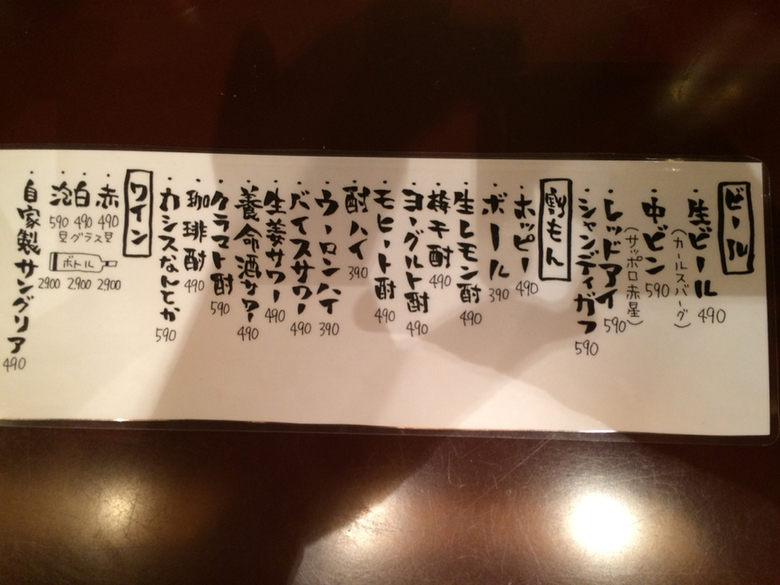 ビール
・生ビール 490
(カールスバーグ)
・中ビン 590
(サッポロ赤星)
・レッドアイ 590
・シャンディガフ 590
割もん
・ホッピー 490
・ボール 390
・生レモン酎 490
・梅干酎 490
・ヨーグルト酎 490
・モヒート酎 490
・酎ハイ 390
・ウーロンハイ 390
・バイスサワー 490
・生姜サワー 490
・養命酒サワー 490
・クラマト酎 590
・珈琲酎 490
・カシスなんとか 590
ワイン
・赤 490
・白 490
・泡 590
グラス
ボトル
2900
2900
2900
・自家製サングリア 490